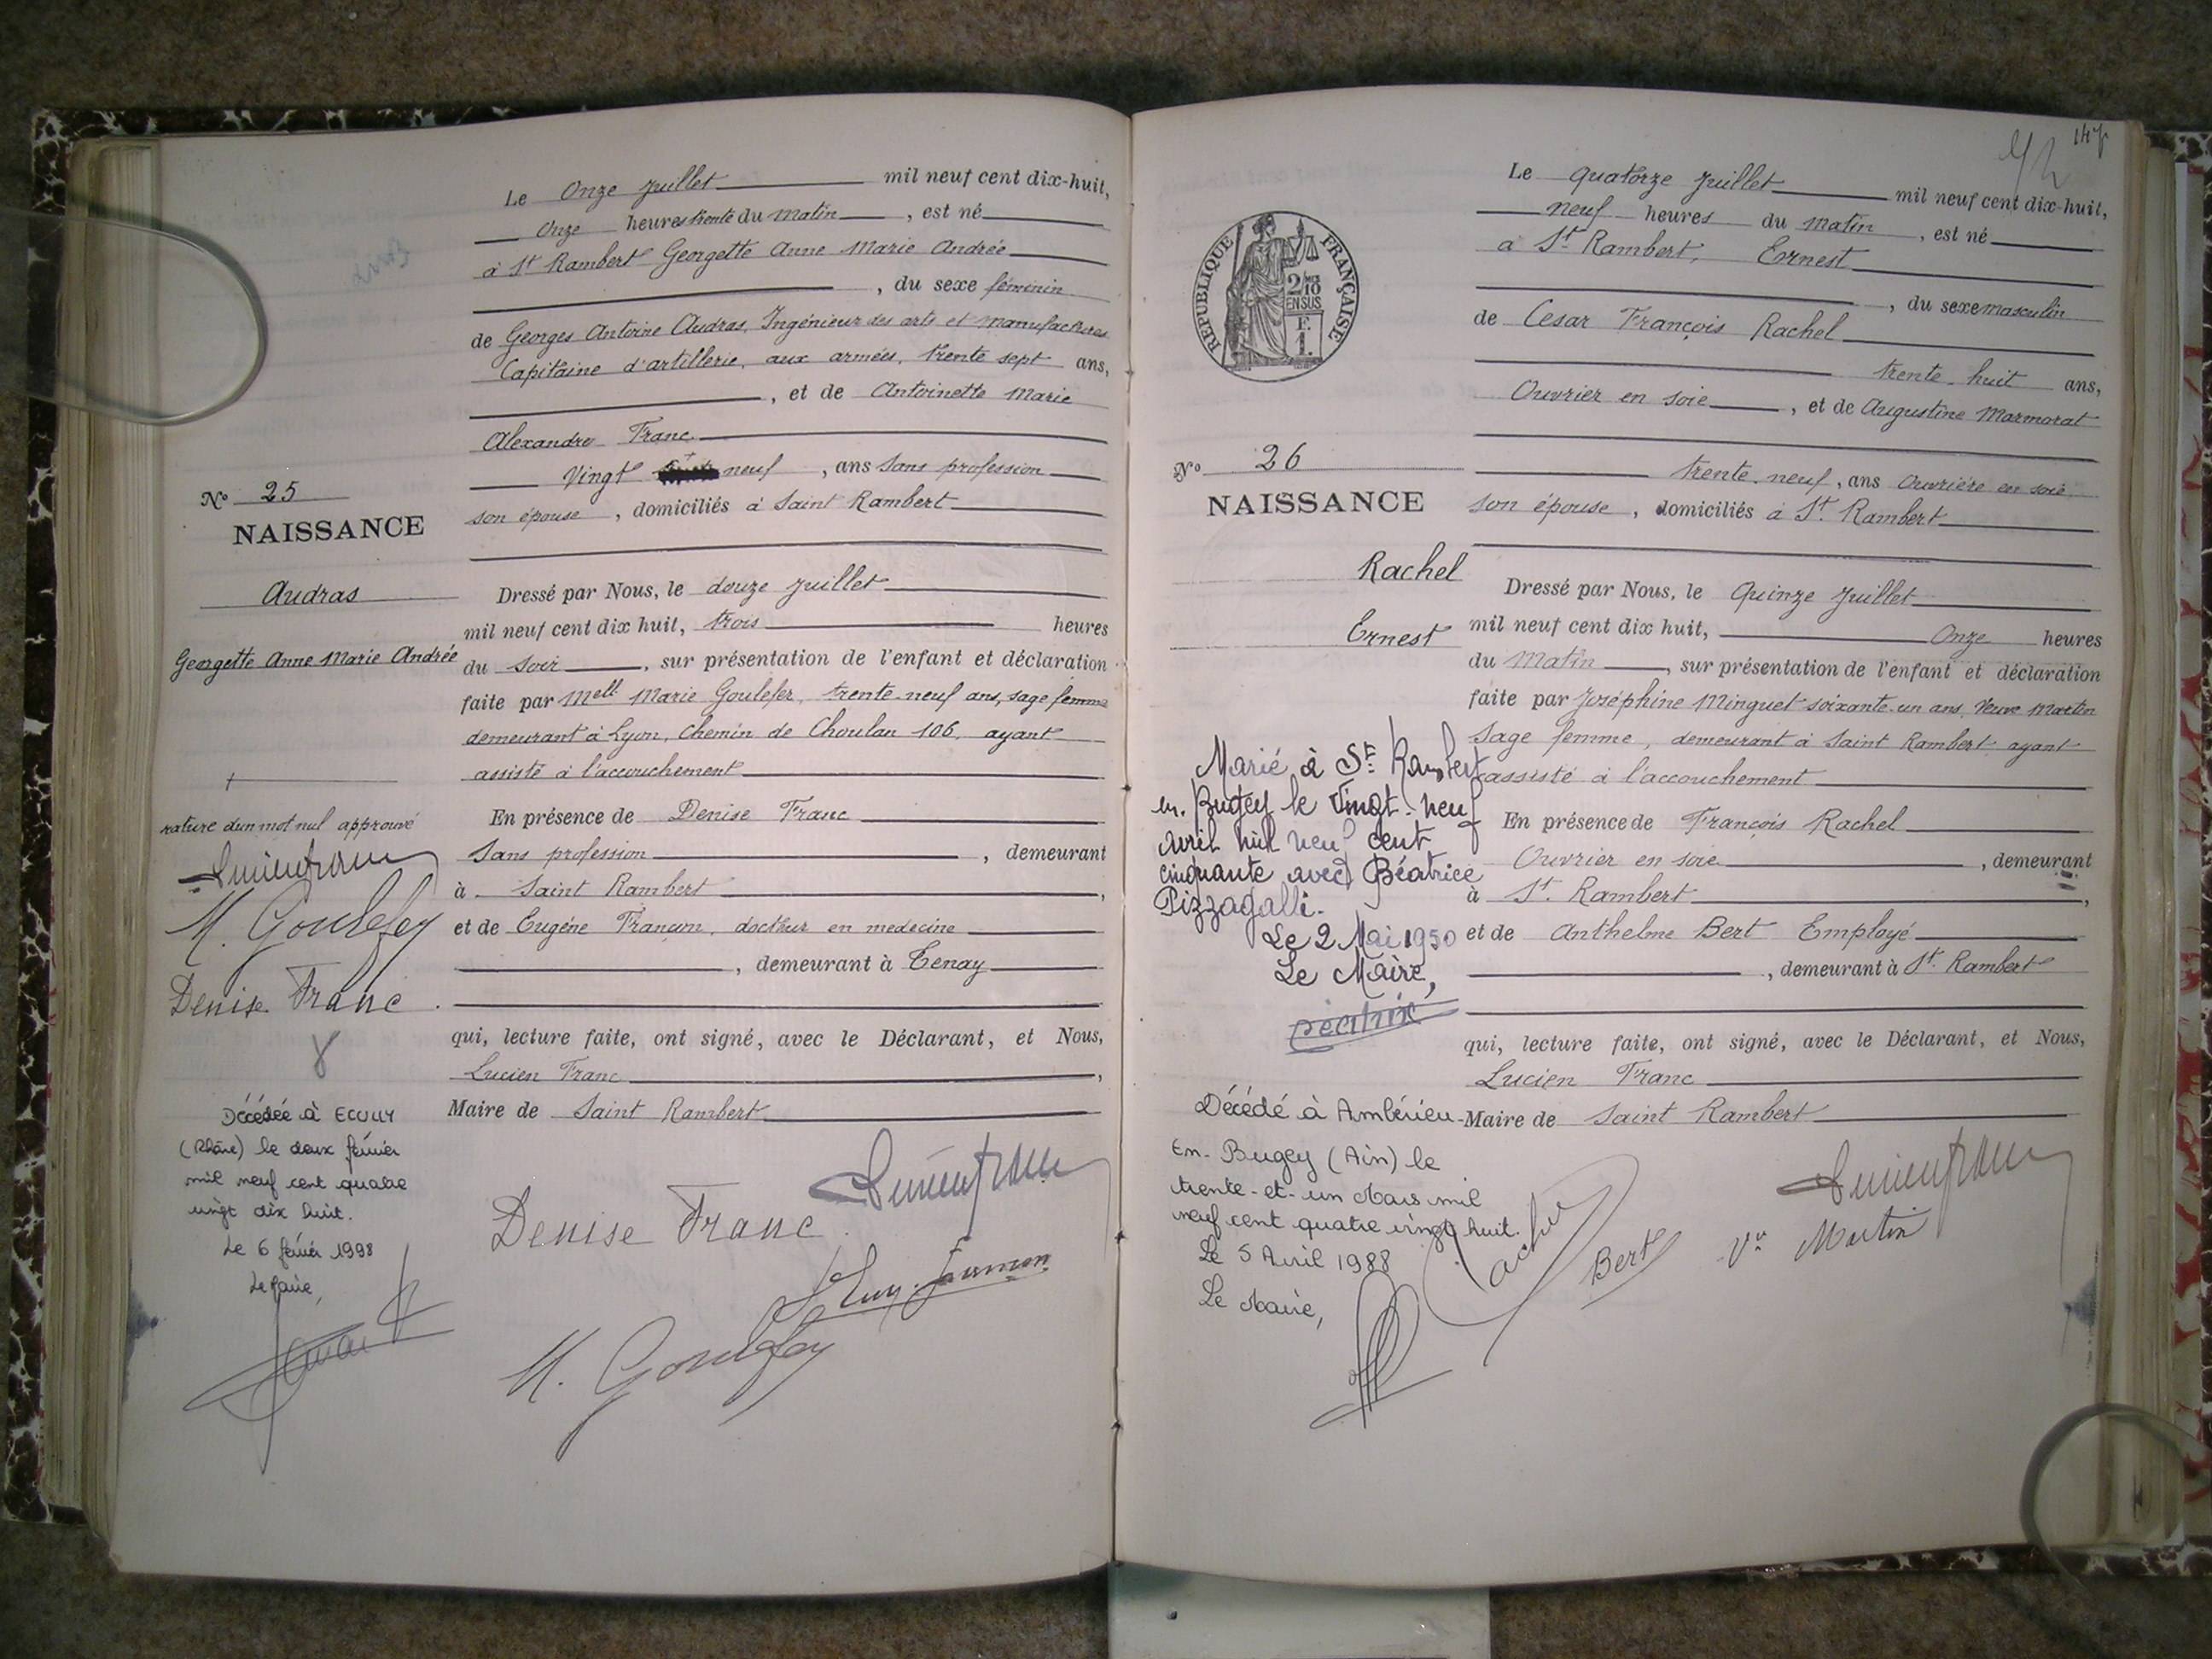 Le Onze Juillet mil neuf cent dix-huit,
Onze heures trente du matin, est né
à St Rambert Georgette Anne Marie Andrée
, du sexe féminin
de Georges Antoine Audras, Ingénieur des arts et manufactures
Capitaine d'artillerie, aux armées, trente sept ans,
, et de Antoinette Marie
Alexandre Franc
Vingt neuf, ans Sans profession
son épouse, domiciliés à Saint Rambert
N° 25
NAISSANCE
Audras
Georgette Anne Marie Andrée
Dressé par Nous, le douze Juillet
mil neuf cent dix huit, trois heures
du soir, sur présentation de l'enfant et déclaration
faite par Mell Marie Goulefer, trente-neuf ans, sage femme
demeurant à Lyon, Chemin de Choulan 106, ayant
assisté à l'accouchement
En présence de Denise Franc
Sans profession, demeurant
à Saint Rambert,
et de Eugène Françon, docteur en medecine
, demeurant à Tenay
qui, lecture faite, ont signé, avec le Déclarant, et Nous,
Lucien Franc,
Maire de Saint Rambert
rature d'un mot nul approuvé
Lucien Franc
M. Goulefer
Denise Franc
Décédée à ECULLY
(Rhône) le deux février
mil neuf cent quatre
vingt dix huit.
Le 6 février 1998
Le Maire,
Lucien Franc
Denise Franc
M. Goulefer
147
REPUBLIQUE FRANÇAISE
2/10
EN SUS
F.
1.
Le quatorze Juillet mil neuf cent dix-huit,
neuf heures du matin, est né
à St Rambert, Ernest
, du sexe masculin
de Cesar François Rachel
trente-huit ans,
Ouvrier en soie, et de Augustine Marmorat
trente-neuf, ans Ouvrière en soie,
son épouse, domiciliés à St Rambert
N° 26
NAISSANCE
Rachel
Ernest
Dressé par Nous, le Quinze Juillet
mil neuf cent dix huit, Onze heures
du Matin, sur présentation de l'enfant et déclaration
faite par Joséphine Minguet soixante-un ans, Veuve Martin
Sage femme, demeurant à Saint Rambert ayant
assisté à l'accouchement
En présence de François Rachel
Ouvrier en soie, demeurant
à St. Rambert,
et de Anthelme Bert Employé
, demeurant à St. Rambert
qui, lecture faite, ont signé, avec le Déclarant, et Nous,
Lucien Franc
Maire de Saint Rambert
Marié à St Rambert
en Bugey le Vingt-neuf
Avril mil neuf cent
cinquante avec Béatrice
Pizzagalli.
Le 2 Mai 1950
Le Maire,
Décédé à Ambérieu-
En-Bugey (Ain) le
trente-et-un Mars mil
neuf cent quatre vingt huit.
Le 5 Avril 1988
Le Maire,
Lucien Franc
Rachel
Bert
Vve Martin